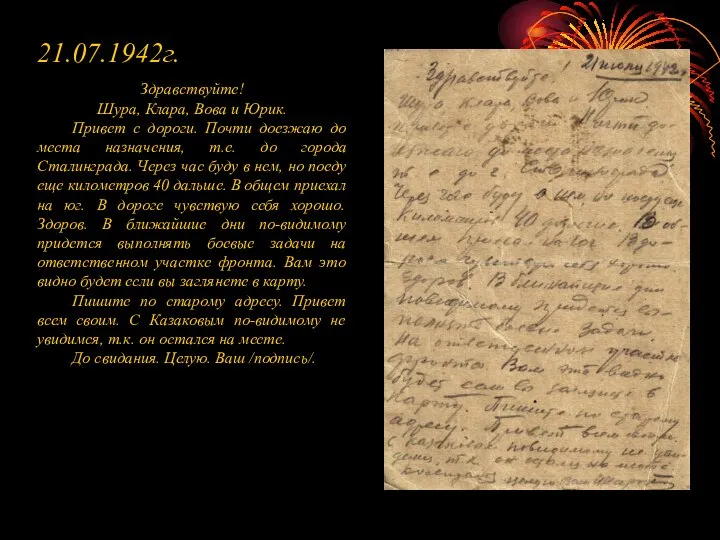 21.07.1942г.
Здравствуйте!
Шура, Клара, Вова и Юрик.
Привет с дороги. Почти доезжаю до
места назначения, т.е. до города
Сталинграда. Через час буду в нем, но поеду
еще километров 40 дальше. В общем приехал
на юг. В дороге чувствую себя хорошо.
Здоров. В ближайшие дни по-видимому
придется выполнять боевые задачи на
ответственном участке фронта. Вам это
видно будет если вы заглянете в карту.
Пишите по старому адресу. Привет
всем своим. С Казаковым по-видимому не
увидимся, т.к. он остался на месте.
До свидания. Целую. Ваш /подпись/.
21 июля 1942г.
Здравствуйте!
Шура Клара, Вова и Юрик
Привет с дороги Почти до-
езжаю до места назначения
т. е до г. Сталинграда
Через час буду в нем, но поеду еще
километров 40 дальше. В об-
щем приехал на юг В до-
роге чувствую себя хорошо
Здоров. В ближайшие дни
повидимому придется вы-
полнять боевые задачи.
На ответственном участке
фронта. Вам это видно
будет если вы заглянете в
карту. Пишите по старому
адресу. Привет всем своим.
С Казаковым повидимому не уви-
димся, т.к. он остался на месте
До свидания целую Ваш